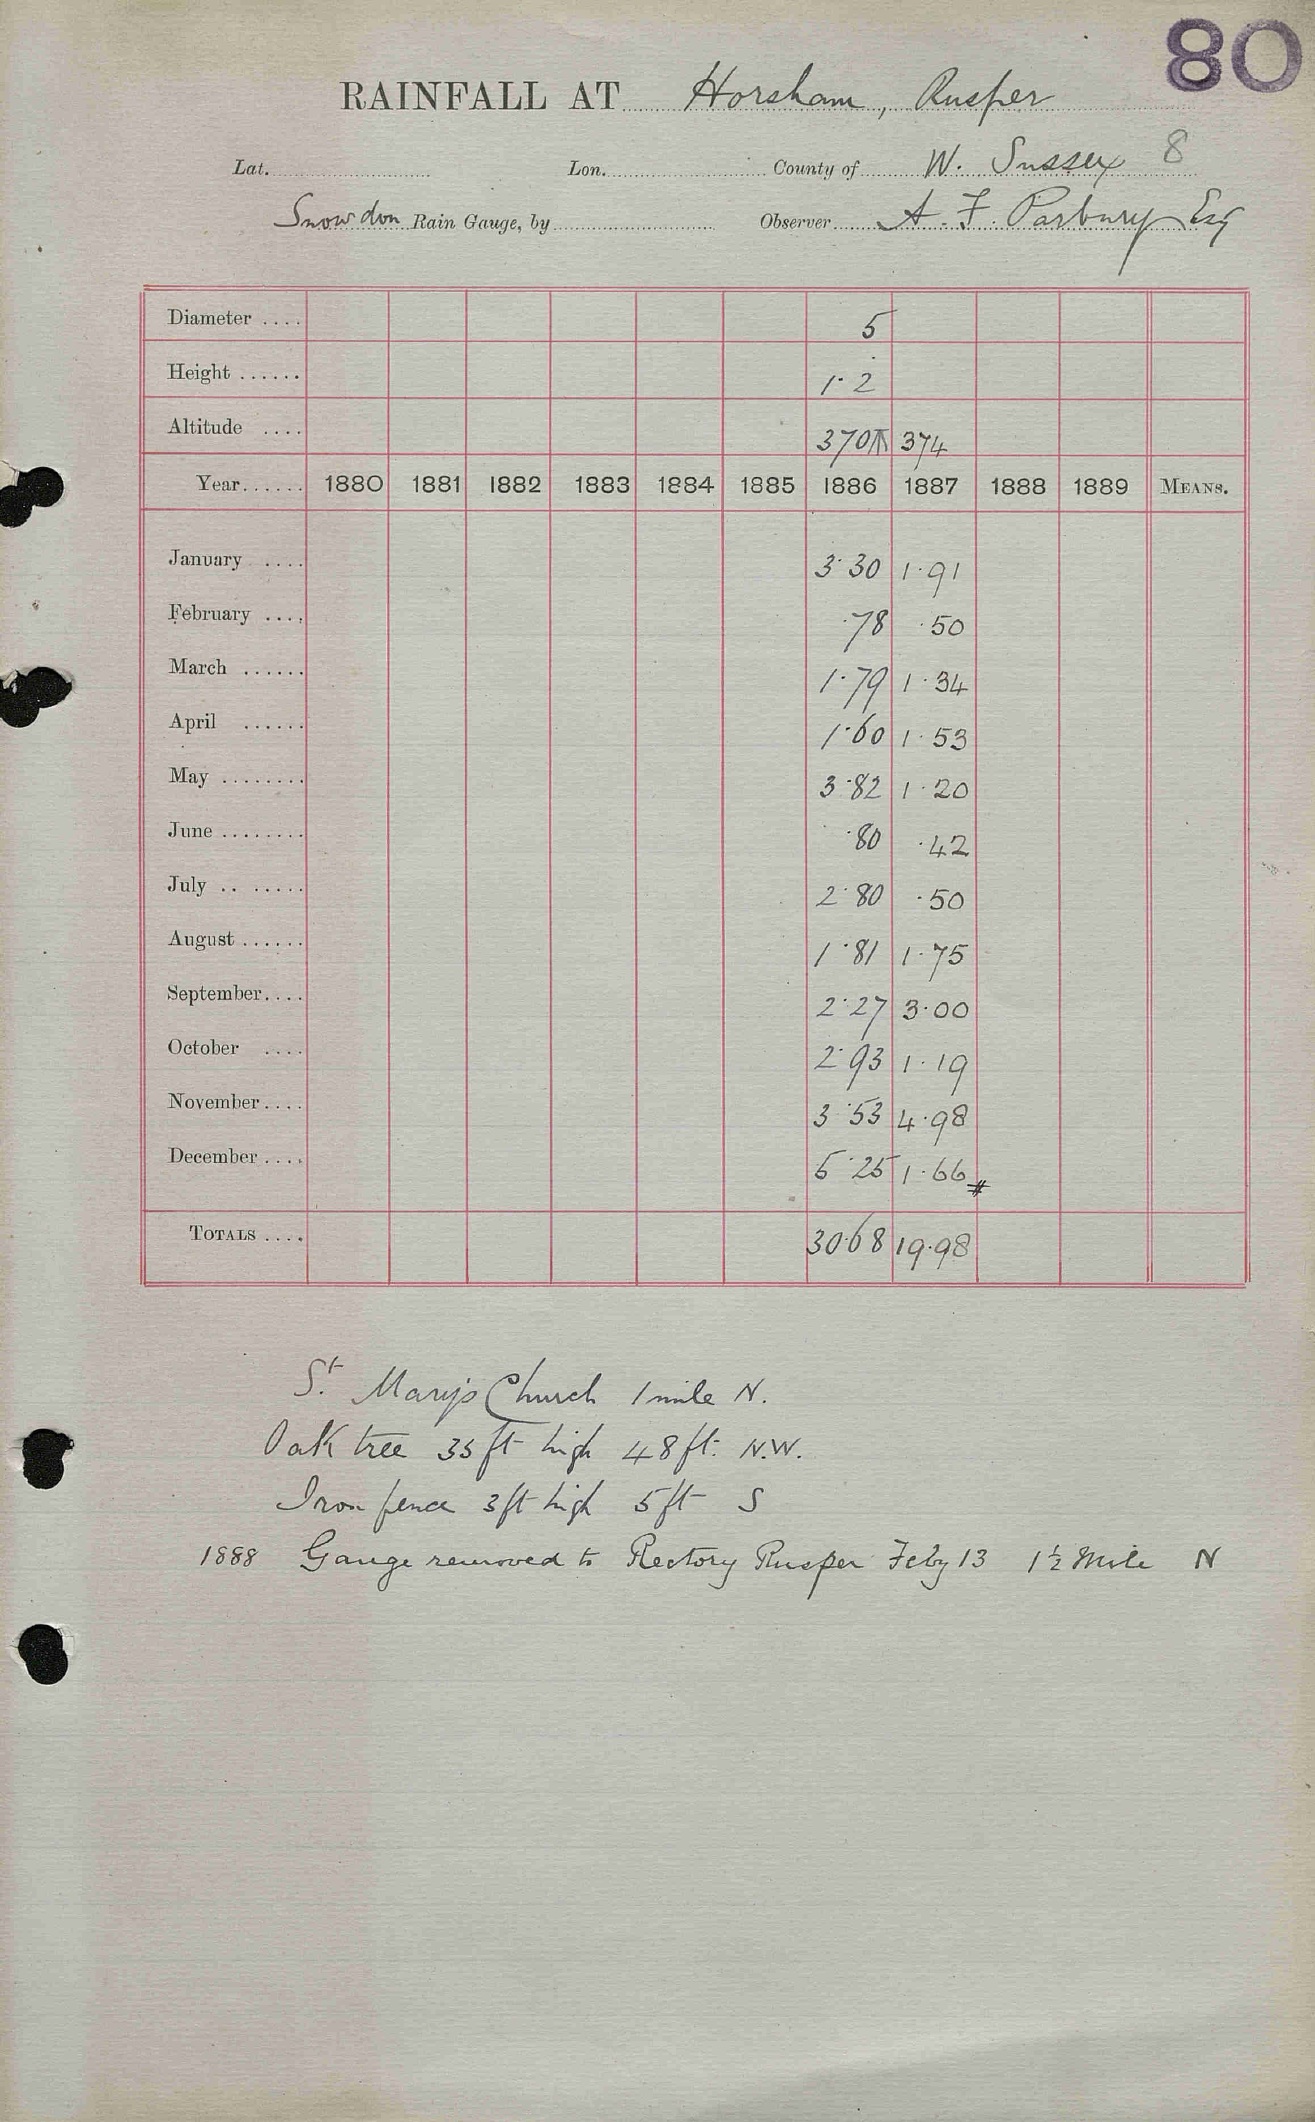 80
RAINFALL AT Horsham, Rusper
Lat. Lon. County of W. Sussex 8
Snowdon Rain Gauge, by Observer A. F. Parbury Esq
Diameter .... 5
Height ...... 1·2
Altitude .... 370 374
Year...... 1880 1881 1882 1883 1884 1885 1886 1887 1888 1889 MEANS.
January .... 3·30 1·91
February .... ·78 ·50
March ...... 1·79 1·34
April ...... 1·60 1·53
May ........ 3·82 1·20
June ........ ·80 ·42
July .. ..... 2·80 ·50
August ...... 1·81 1·75
September.... 2·27 3·00
October .... 2·93 1·19
November.... 3·53 4·98
December .... 5·25 1·66 #
TOTALS .... 30·68 19·98
St. Mary's Church 1 mile N.
Oak tree 35 ft high 48 ft. N.W.
Iron fence 3 ft high 5 ft S
1888 Gauge removed to Rectory Rusper Feby 13 1½ Mile N